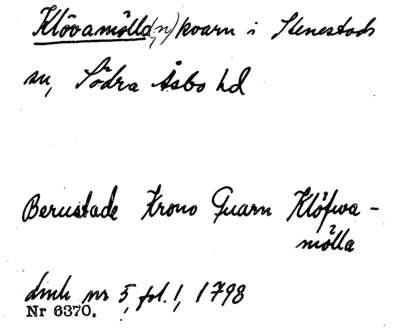 Klövamölla(n) kvarn i Stenestads
sn, Södra Åsbo hd
Berustade Krono Quarn Klöfwa-
mölla
dmh nr 5, fol. 1, 1798
Nr 6370.